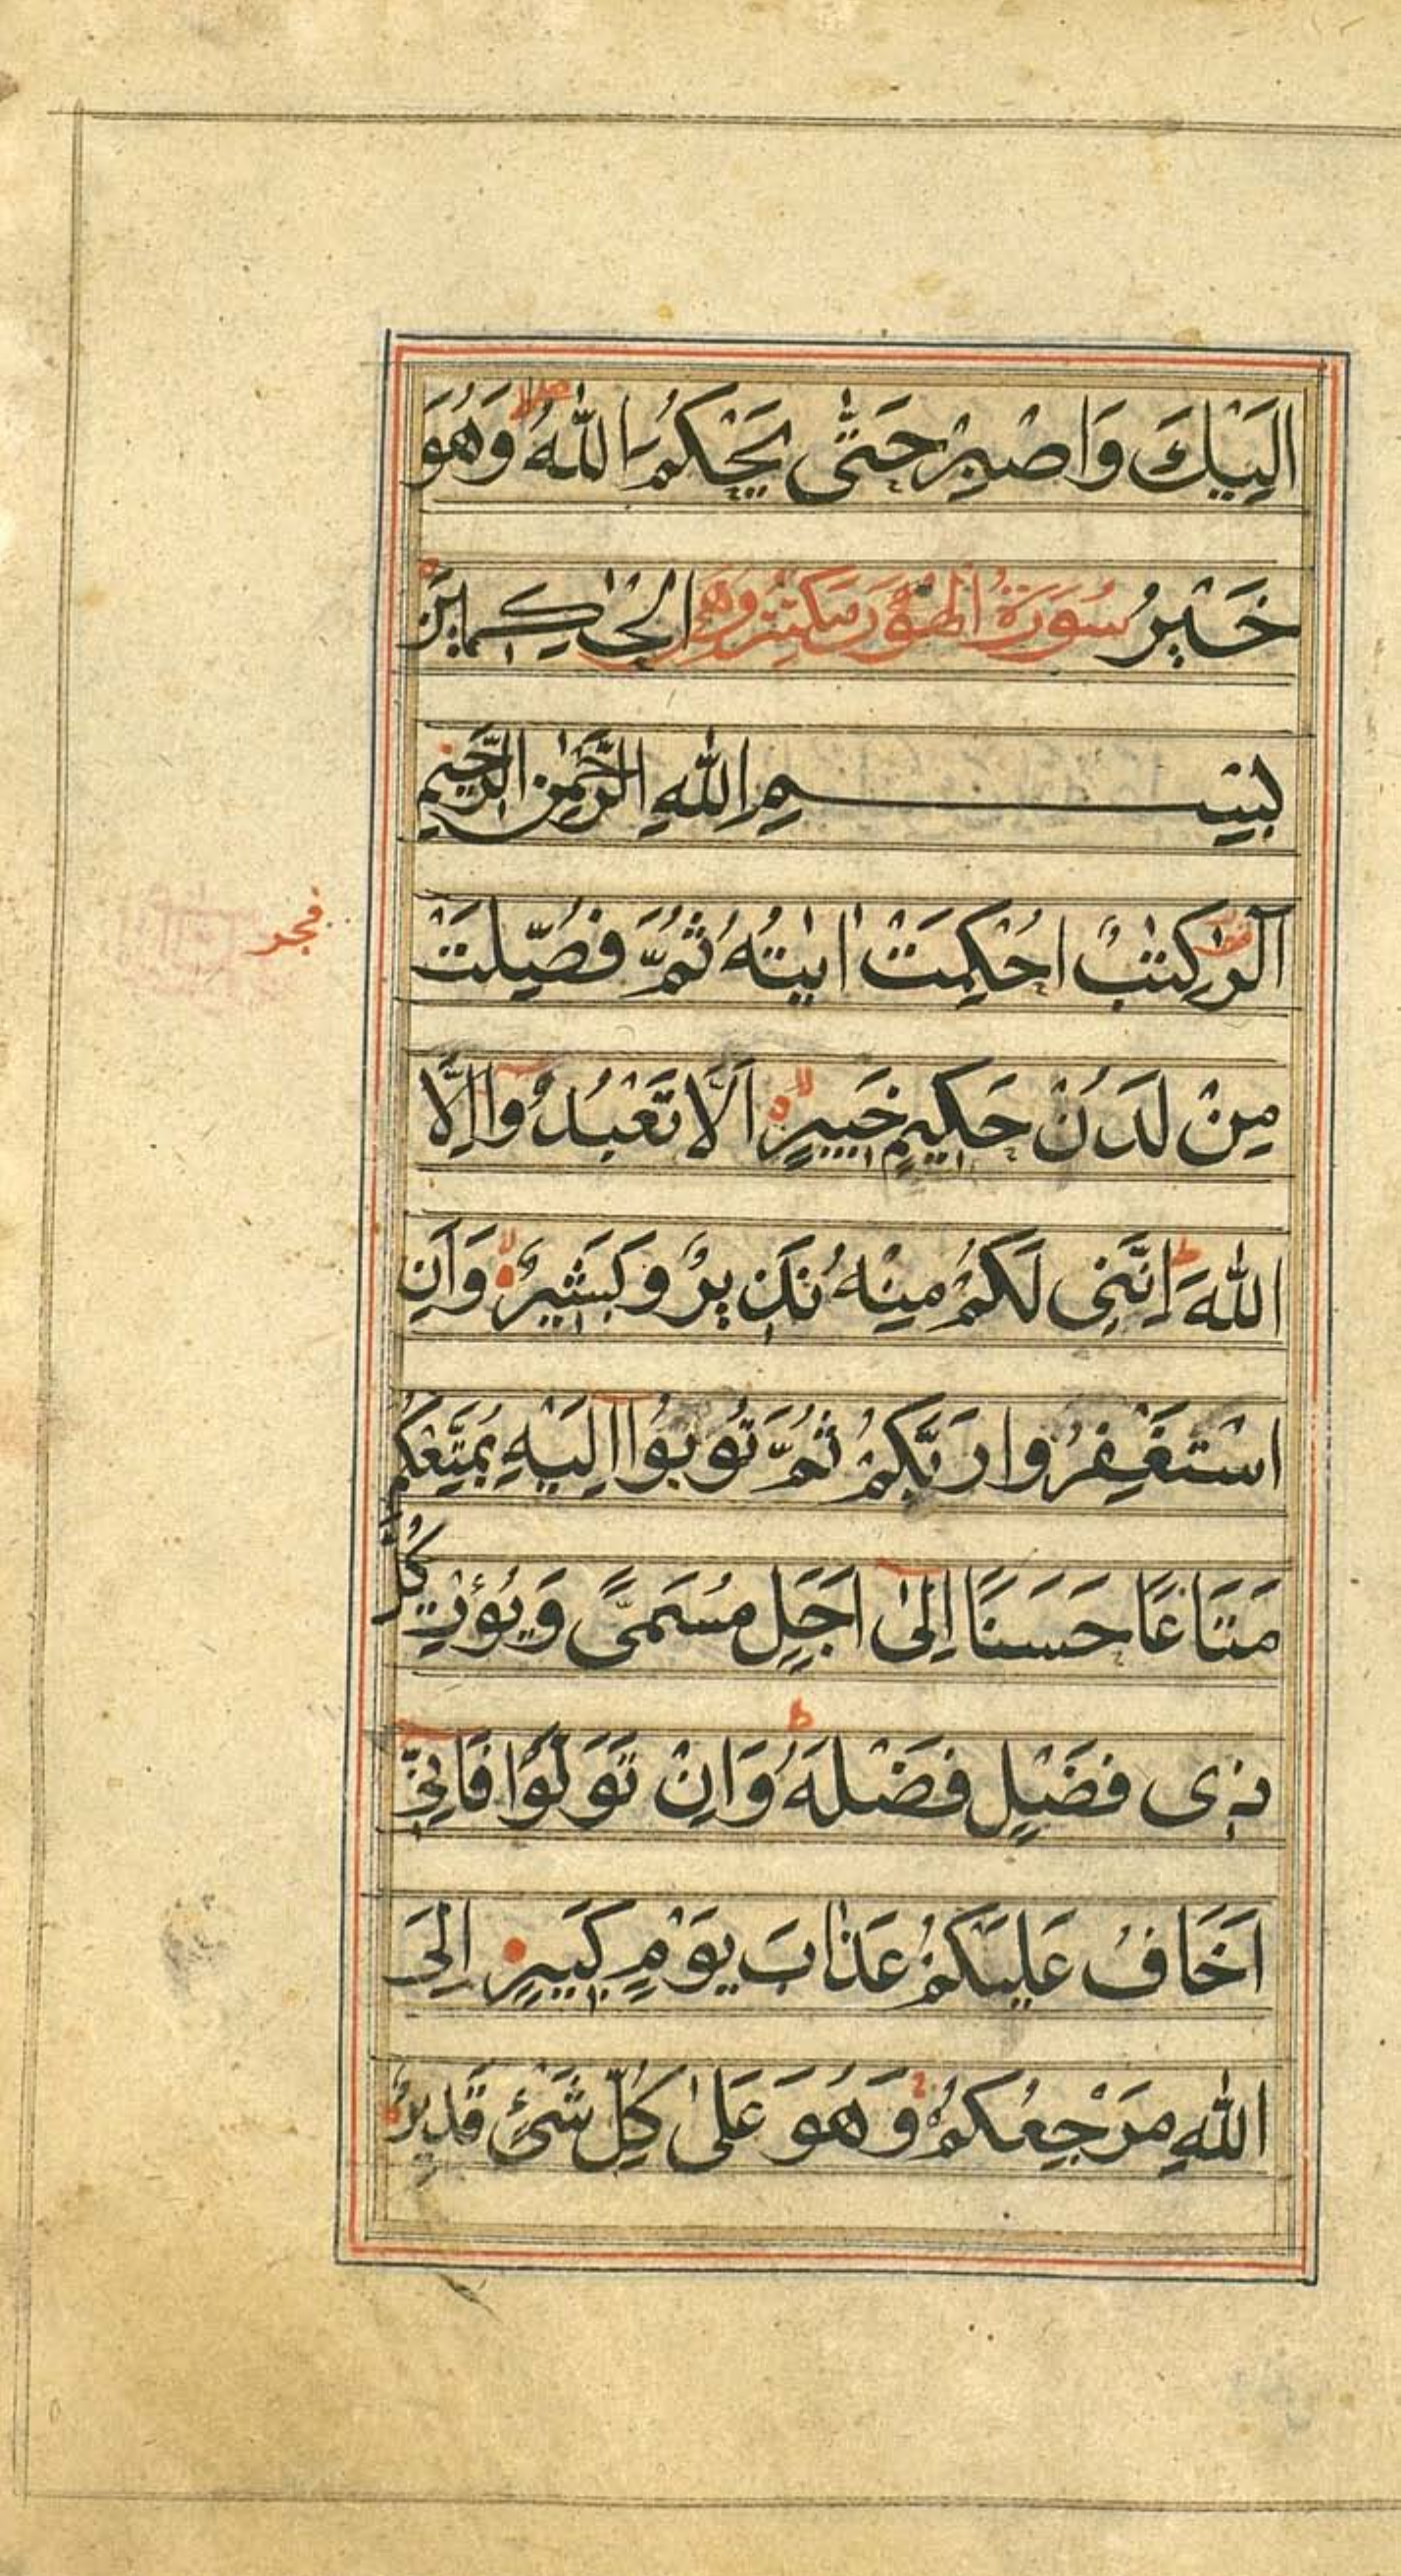 اِلَيْكَ وَاصْبِرْ حَتّٰى يَحْكُمَ اللّٰهُ وَهُوَ
خَيْرُ سُورَةُ الْهُوْد مَكِّيَّة وَهِيَ الْحٰكِمِيْنَ
بِسْمِ اللّٰهِ الرَّحْمٰنِ الرَّحِيْمِ
الٓرٰ كِتٰبٌ اُحْكِمَتْ اٰيٰتُهُ ثُمَّ فُصِّلَتْ
مِنْ لَدُنْ حَكِيْمٍ خَبِيْرٍ اَلَّا تَعْبُدُوْا اِلَّا
اللّٰهَ اِنَّنِىْ لَكُمْ مِنْهُ نَذِيْرٌ وَبَشِيْرٌ وَاَنِ
اسْتَغْفِرُوا رَبَّكُمْ ثُمَّ تُوبُوْا اِلَيْهِ يُمَتِّعْكُمْ
مَتَاعًا حَسَنًا اِلٰى اَجَلٍ مُسَمًّى وَيُؤْتِ كُلَّ
ذِى فَضْلٍ فَضْلَهُ وَاِنْ تَوَلَّوْا فَاِنِّىْ
اَخَافُ عَلَيْكُمْ عَذَابَ يَوْمٍ كَبِيْرٍ اِلَى
اللّٰهِ مَرْجِعُكُمْ وَهُوَ عَلٰى كُلِّ شَىْءٍ قَدِيْرٌ
فجر